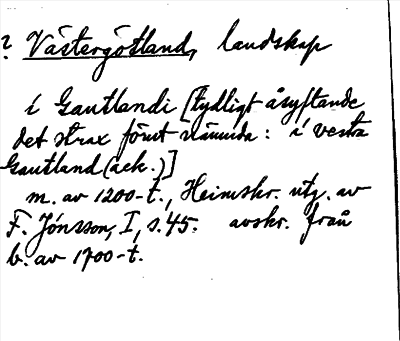 ? Västergötland, landskap
i Gautlandi [tydligt åsyftande
det strax förut nämnda: i vestra
Gautland (ack.)]
m. av 1200-t., Heimskr. utg. av
F. Jónsson, I, s. 45. avskr. från
b. av 1700-t.